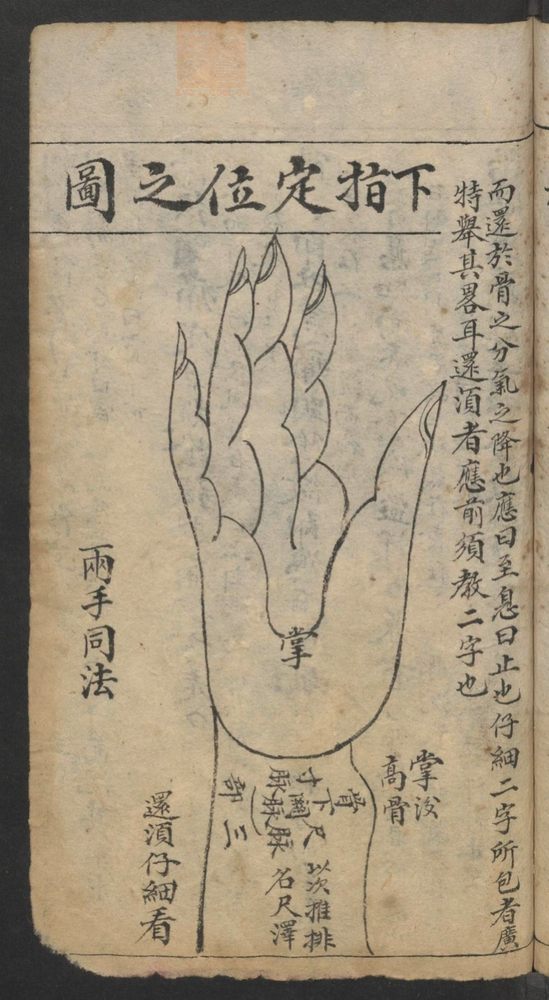 而還於骨之分氣之降也應曰至息曰止也仔細二字所包者廣
特舉其畧耳還湏者應前須教二字也
下指定位之圖
掌
掌後
高骨
骨下
寸脉
關脉
尺脉
三部
以次推排
名尺澤
兩手同法
還湏仔細看